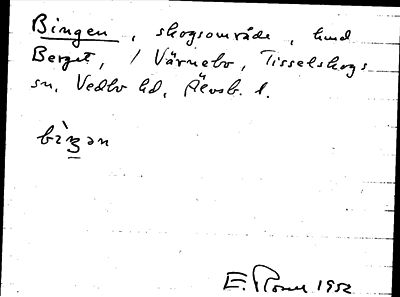 Bingen, skogsområde, hmd
Berget, / Värnebo, Tisselskogs
sn, Vedbo hd, Älvsb. l.
E. 1952